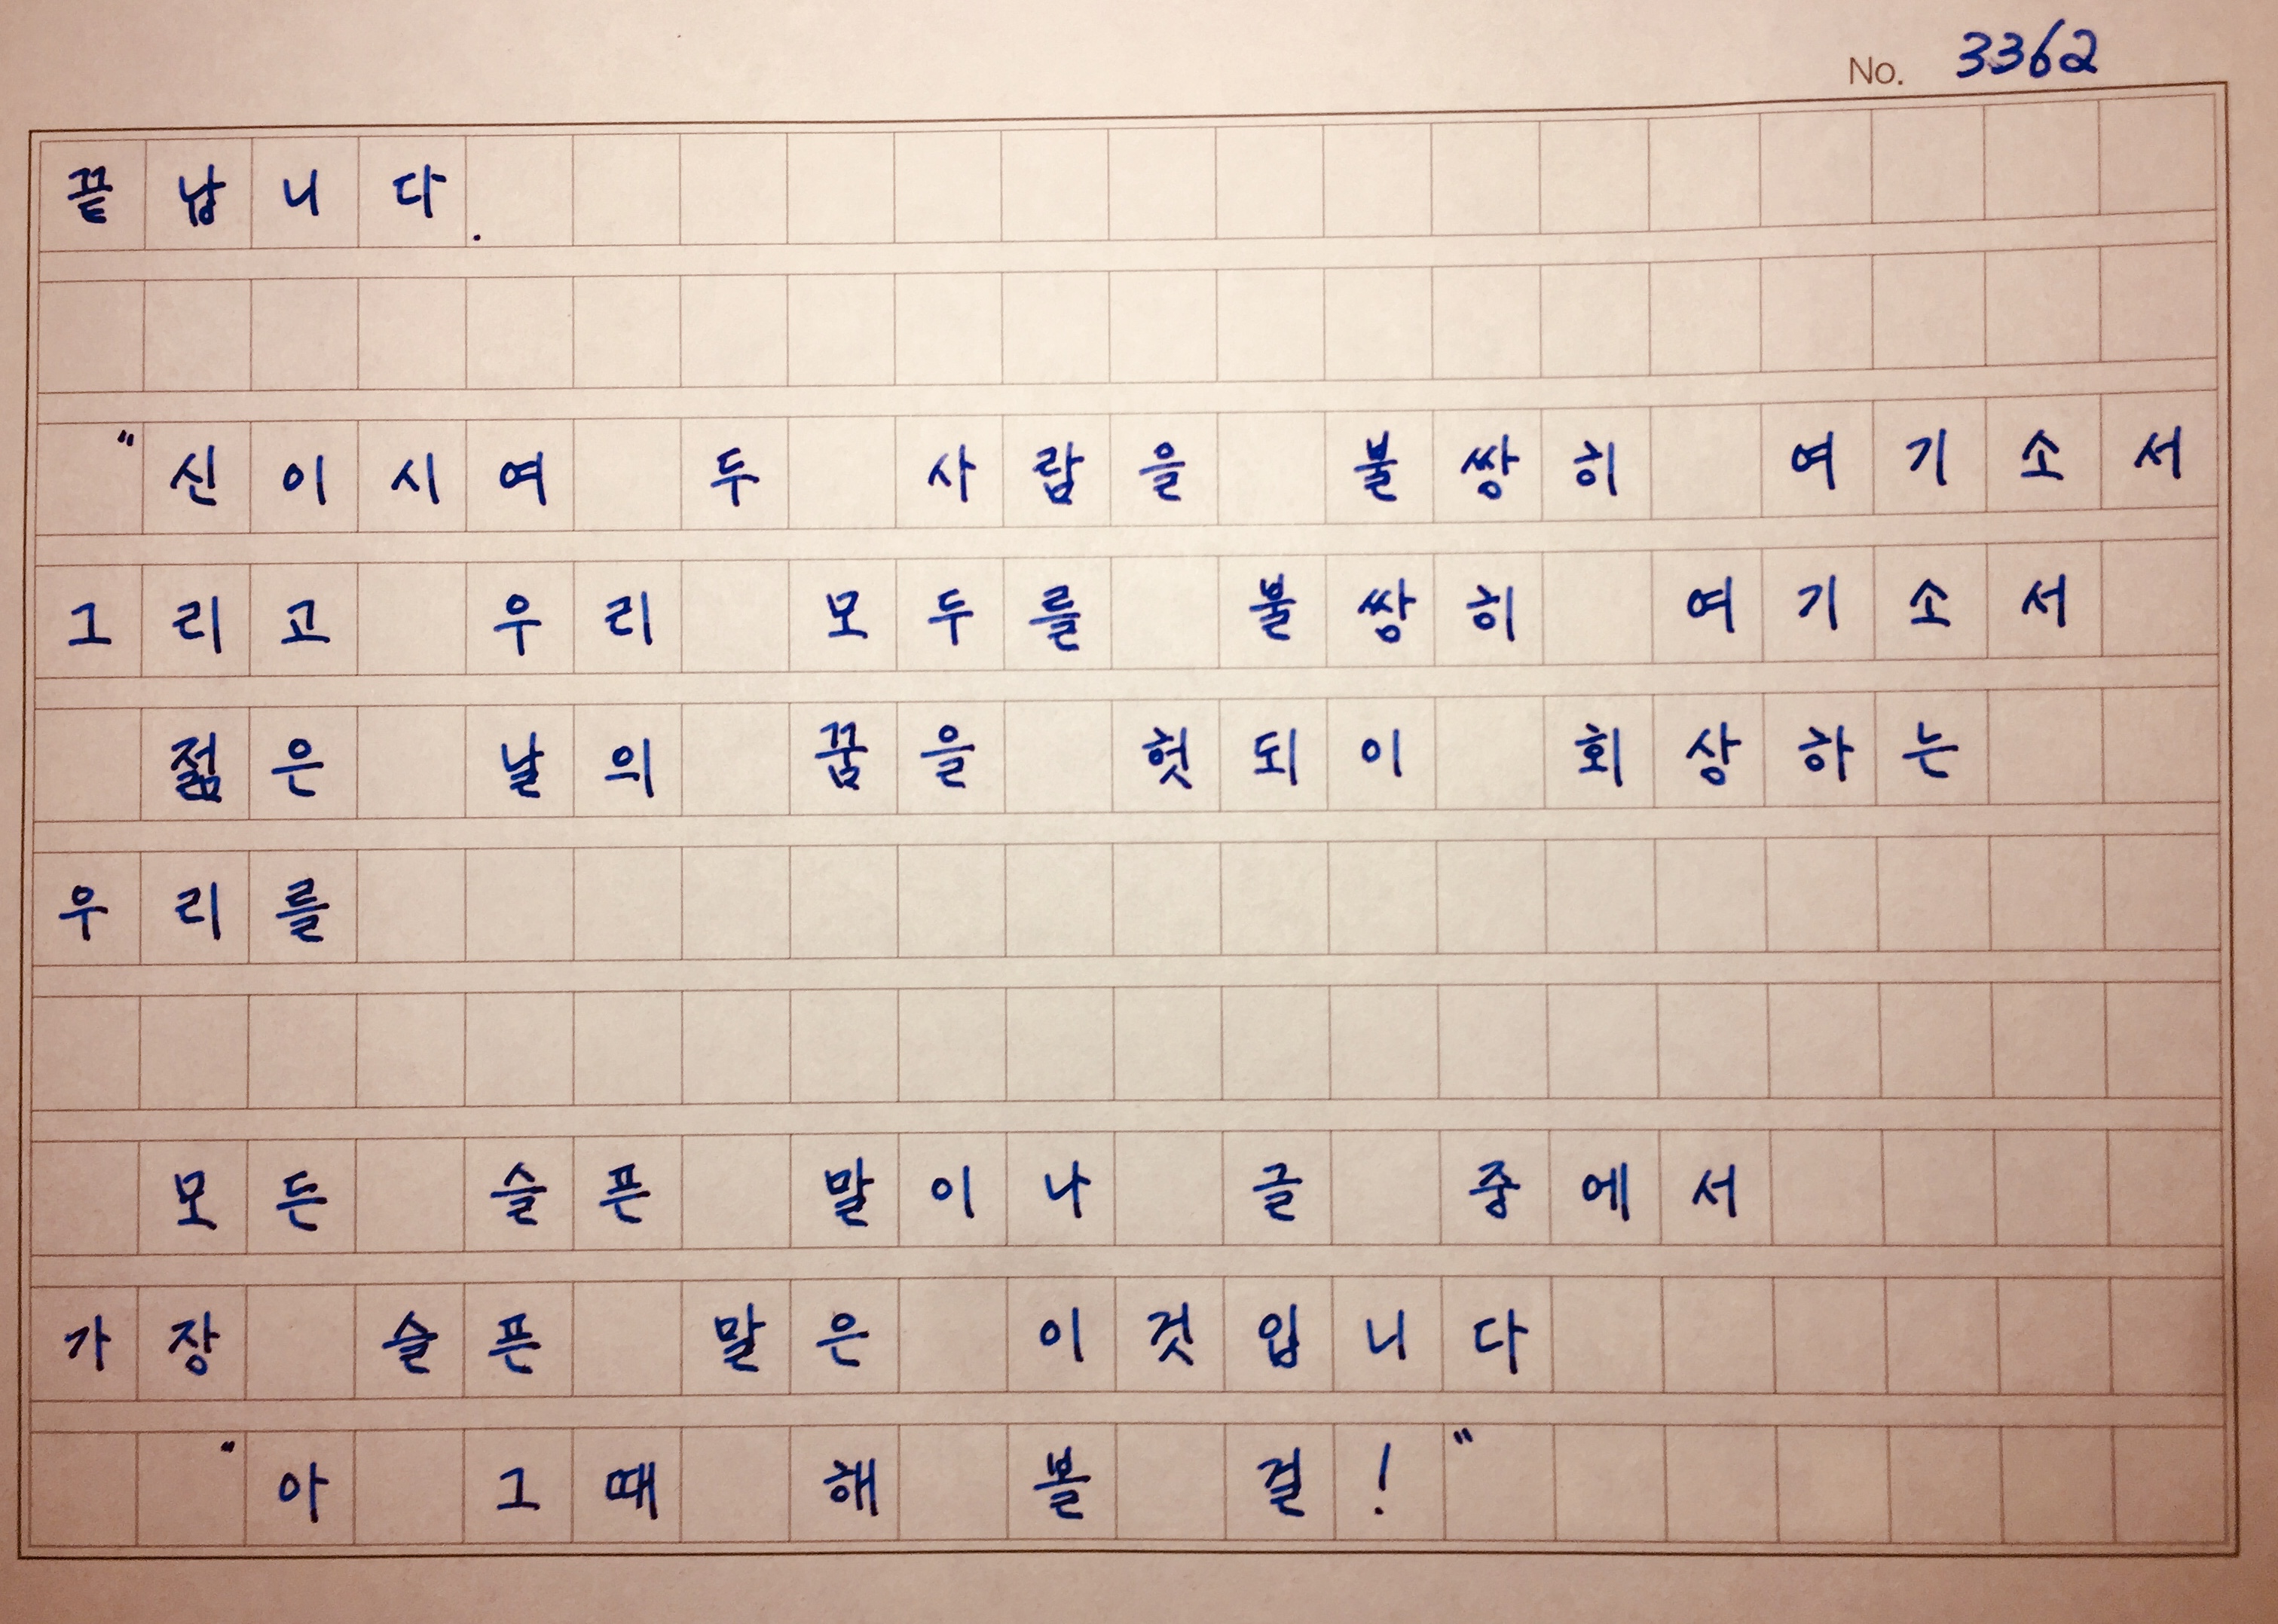 No. 3362
끝납니다.
"신이시여 두 사람을 불쌍히 여기소서
그리고 우리 모두를 불쌍히 여기소서
젊은 날의 꿈을 헛되이 회상하는
우리를
모든 슬픈 말이나 글 중에서
가장 슬픈 말은 이것입니다
"아 그때 해 볼 걸!"